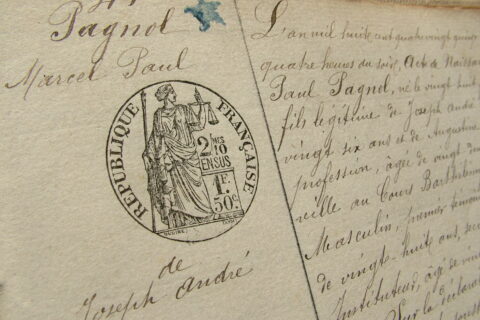 Pagnol
Marcel Paul
RÉPUBLIQUE FRANÇAISE
2/10
EN SUS
1F.
50c
de
Joseph André
L'an mil huit cent quatre vingt
quatre heures du soir, Acte de Naissan
Paul Pagnol, né le vingt huit
fils légitime de Joseph André
vingt six ans et de Augustine
profession, âgée de vingt deux
veille au Cours Barthélemy
Masculin, premier témoin
de vingt huit ans, sec
Instituteur, âgé de vin
Sur la déclara